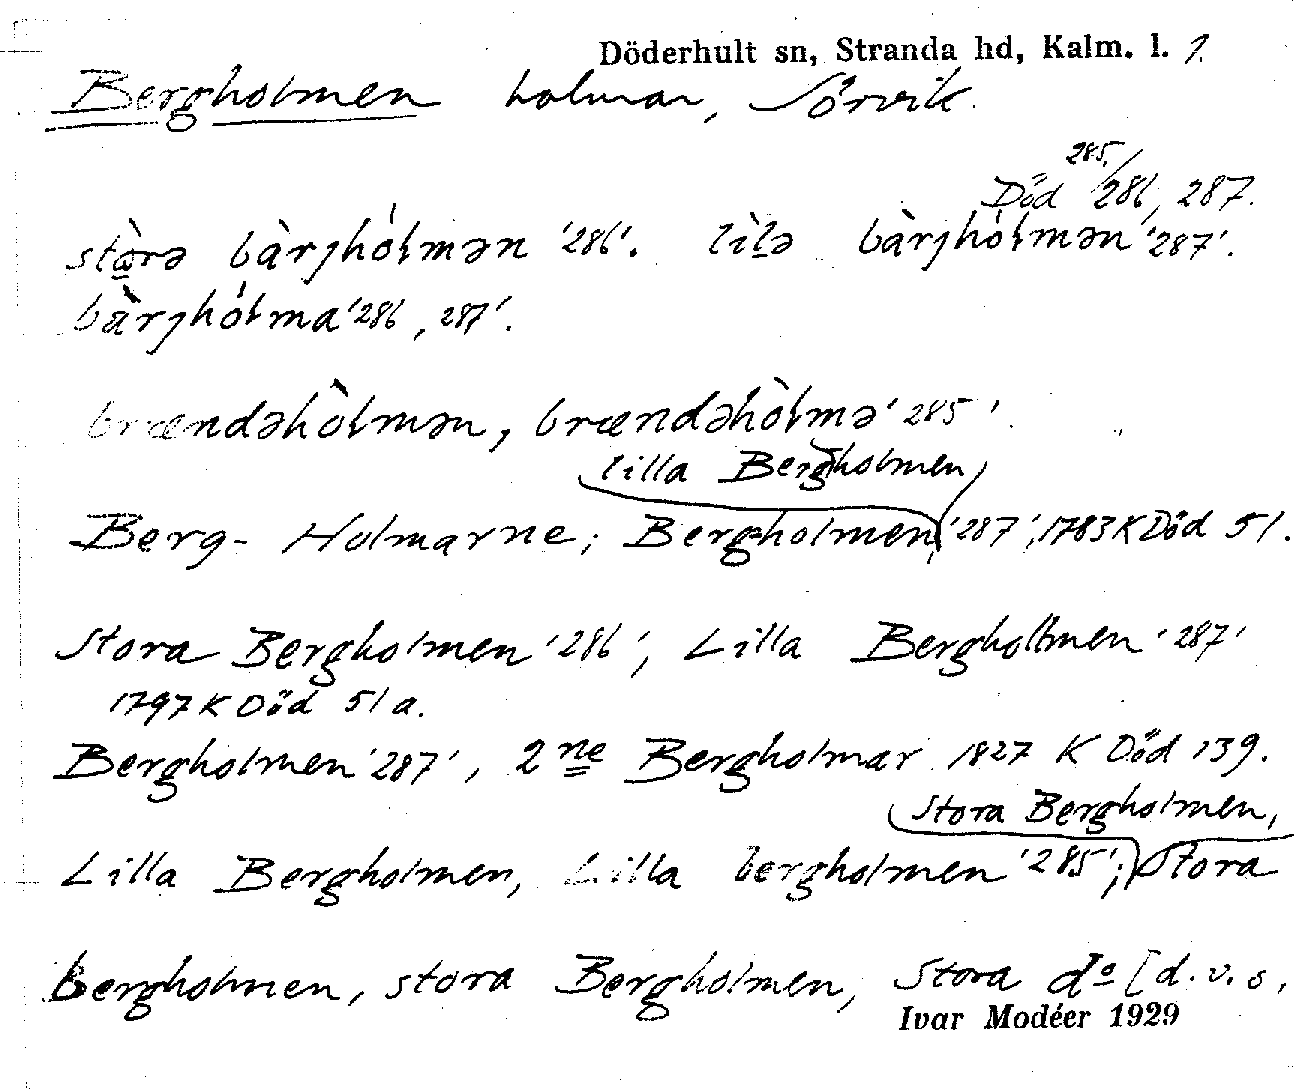 Döderhult sn, Stranda hd, Kalm. l. 1.
Bergholmen holmar, Sörvik.
285,
Död 286, 287.
stòrə bàrjhólmən '286'. lìlə bàrjhólmən '287'.
bàrjhólma '286, 287'.
brændəhòlmən, brændəhòlmə '285'.
lilla Bergholmen,
Berg- Holmarne; Bergholmen, '287', 1783 K Död 51.
Stora Bergholmen '286', Lilla Bergholmen '287'
1797 K Död 51a.
Bergholmen '287', 2ne Bergholmar 1827 K Död 139.
Stora Bergholmen,
Lilla Bergholmen, Lilla bergholmen '285'; Stora
bergholmen, stora Bergholmen, Stora do [d.v.s.
Ivar Modéer 1929